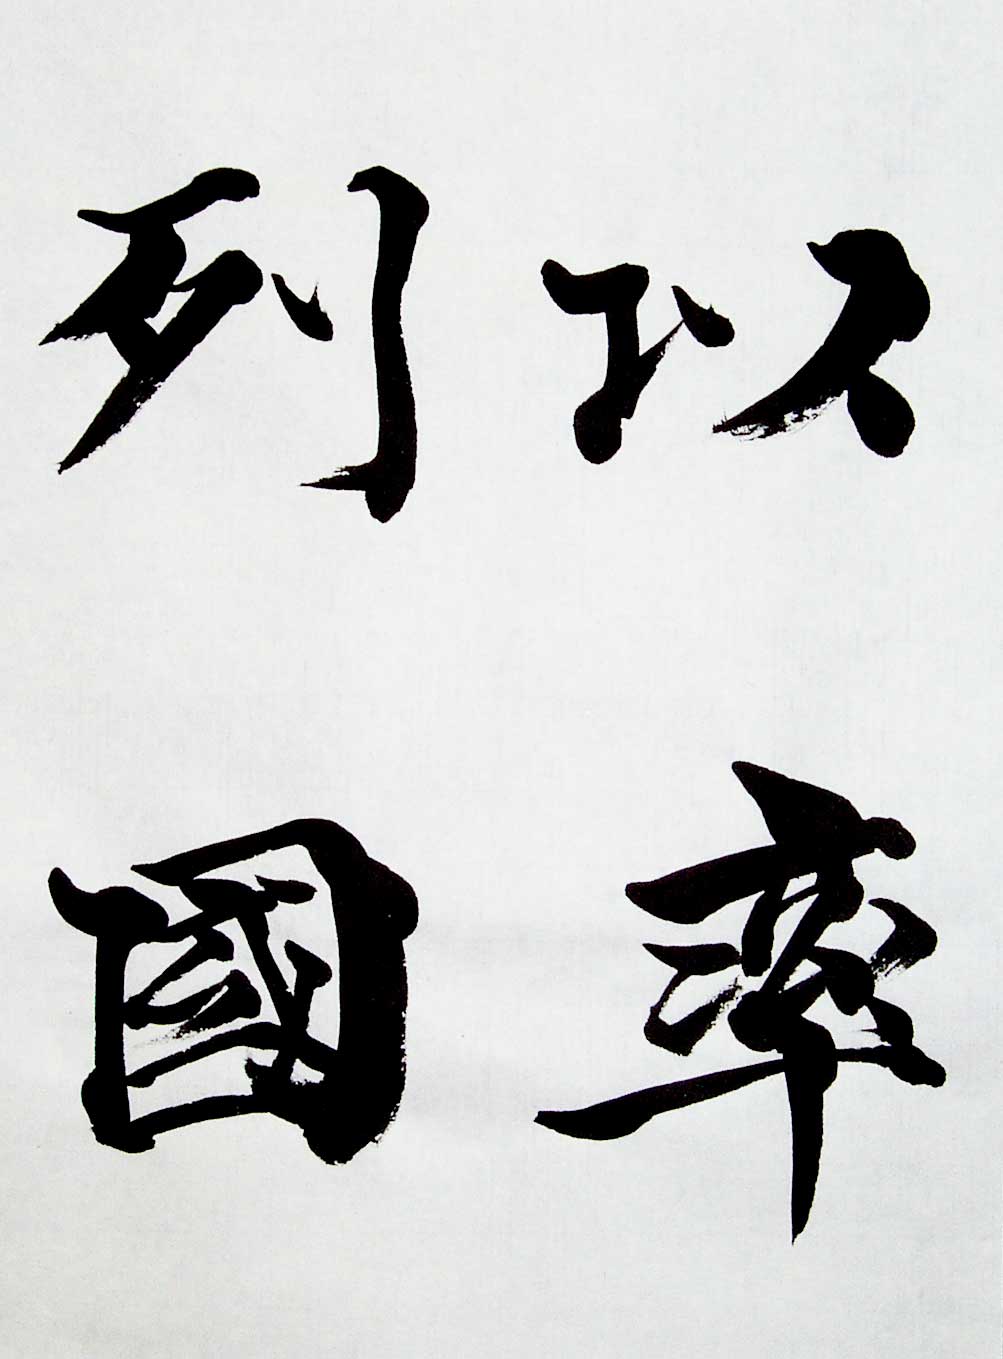 以率
列國